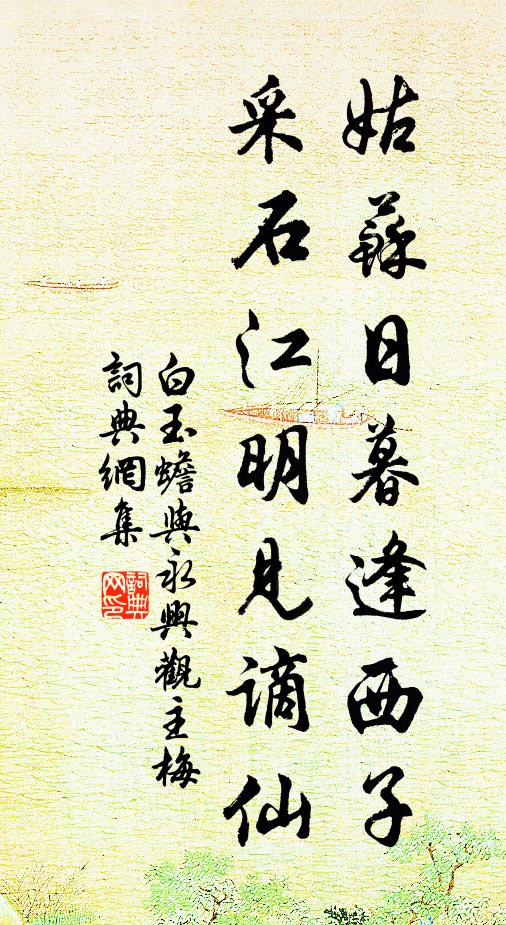 姑蘇日暮逢西子
采石江明見謫仙
白玉蟾與永興觀主梅
詞典網集
詞典网印